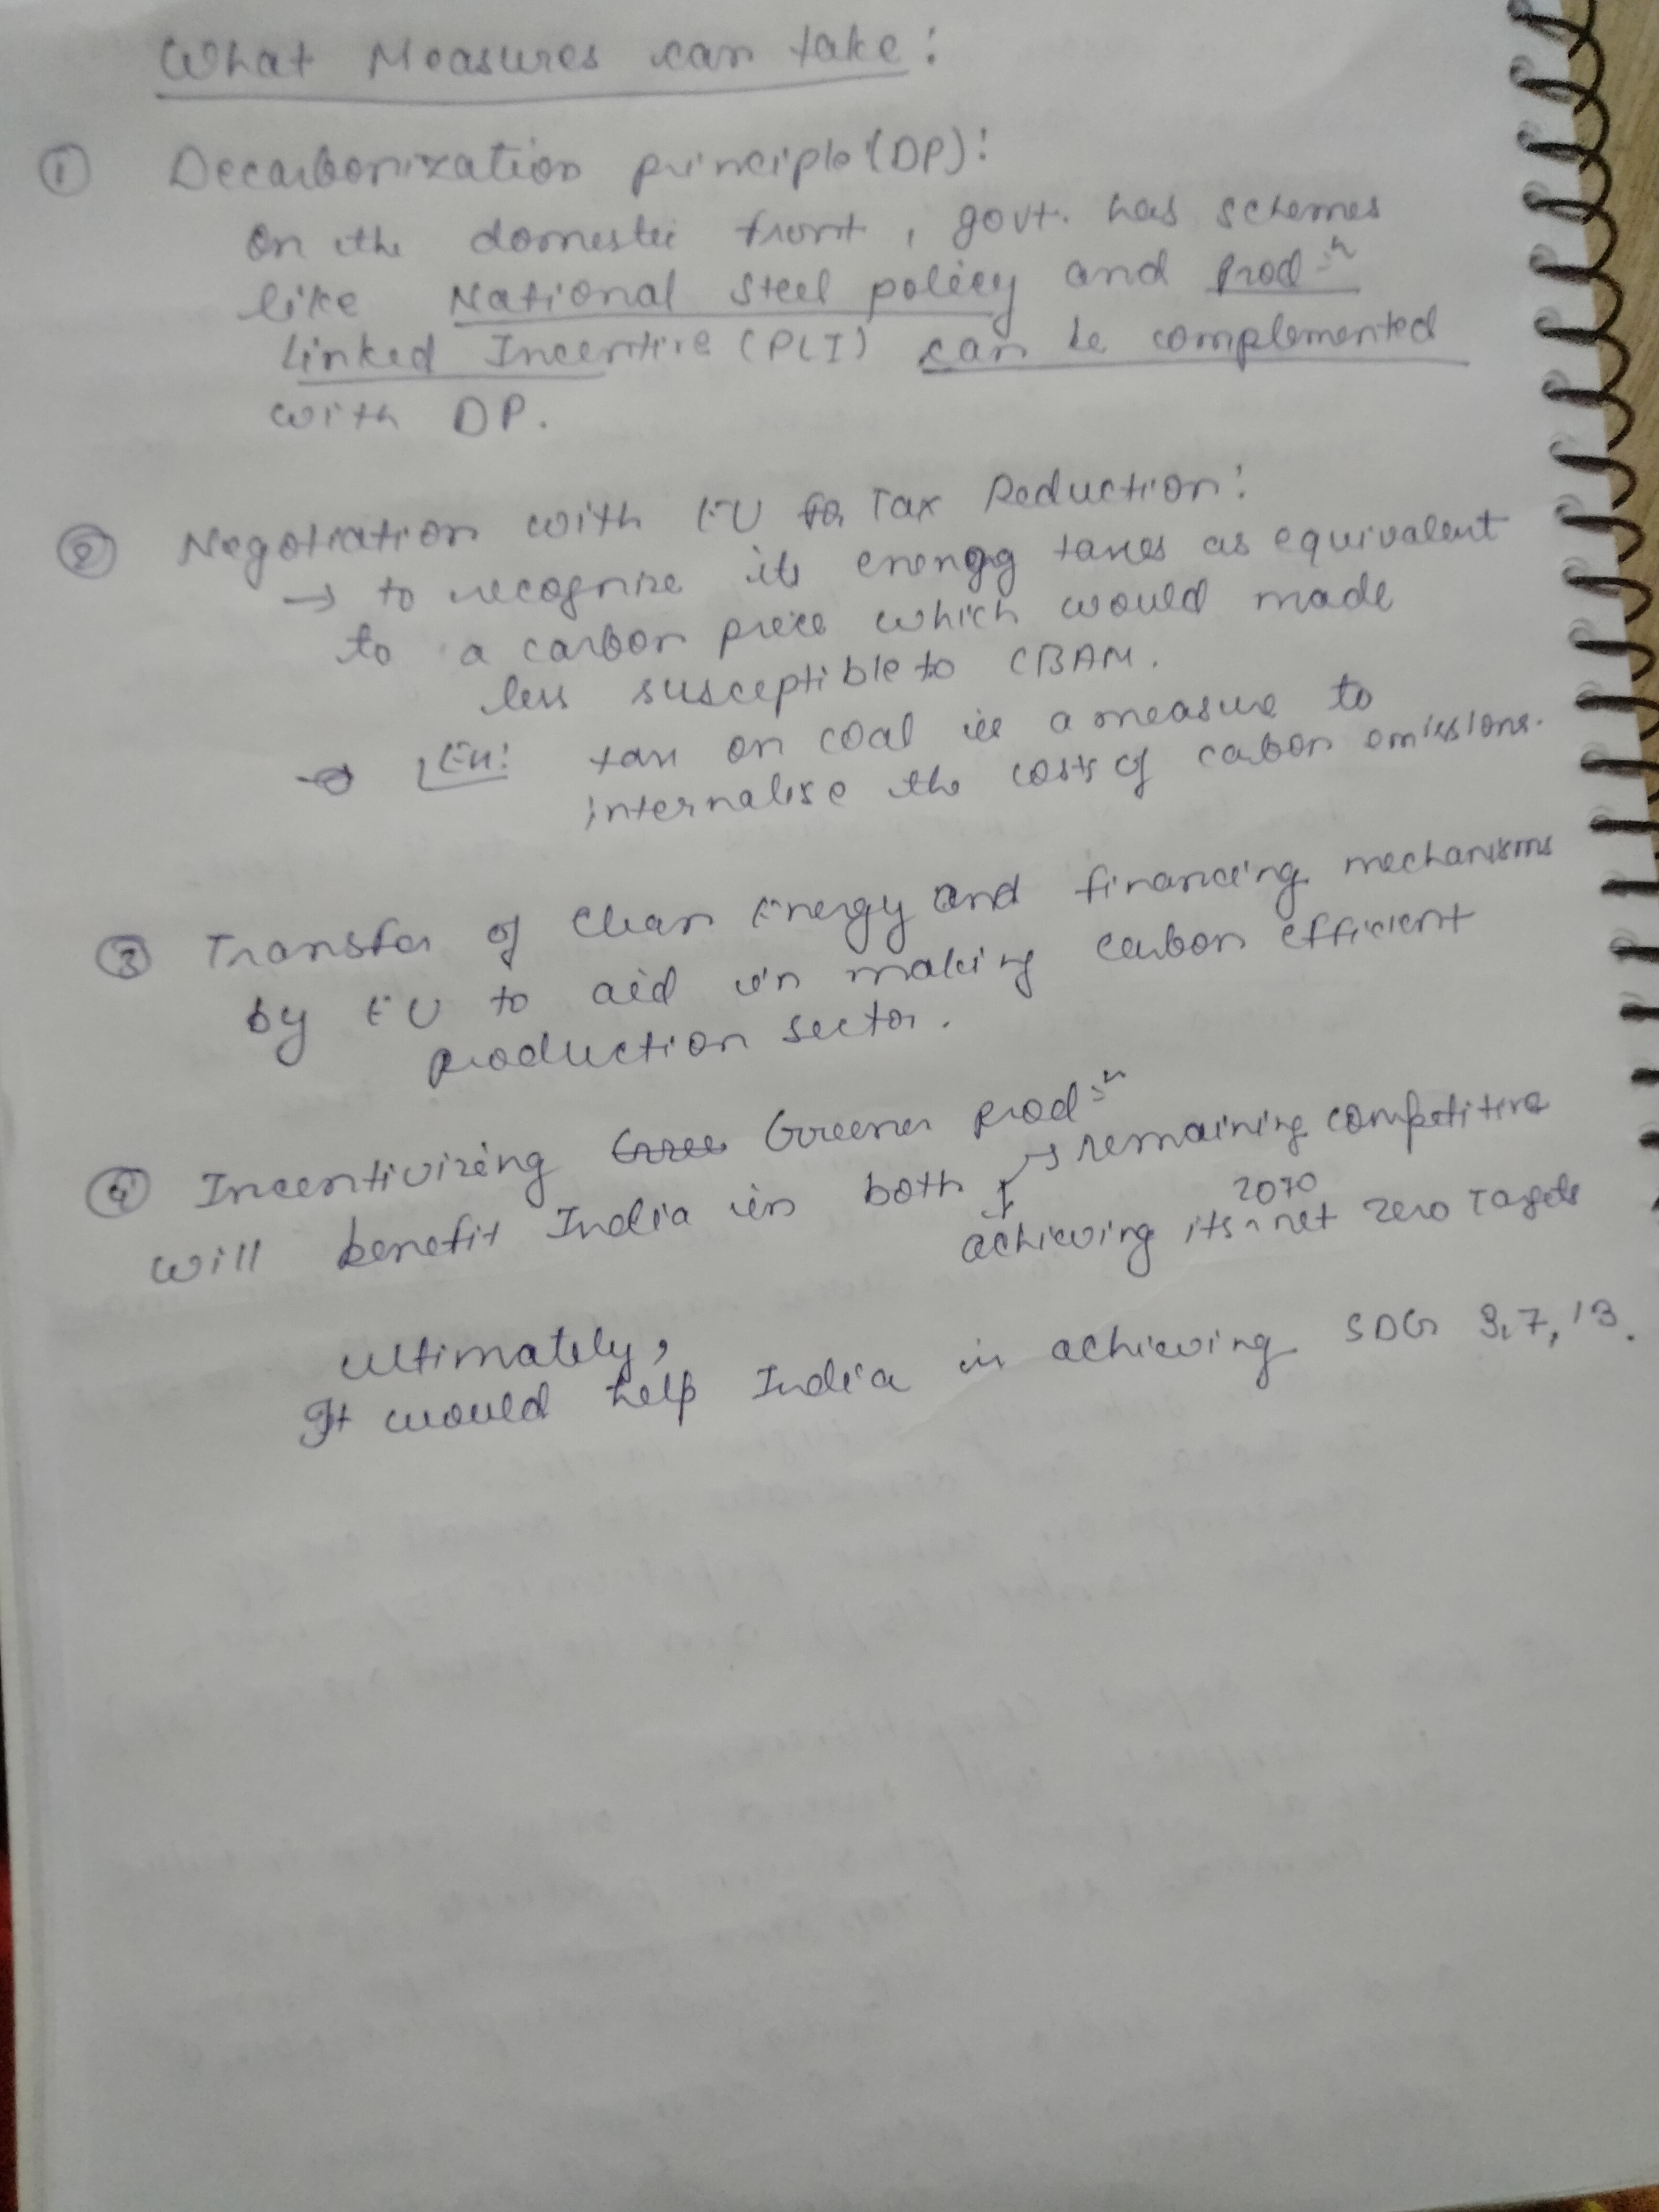 What Measures can take:
① Decarbonization principle (DP):
on the domestic front, govt. has schemes
like National Steel policy and Prodⁿ
Linked Incentive (PLI) can be complemented
with DP.
② Negotiation with EU for Tax Reduction:
→ to recognize its energy taxes as equivalent
to a carbon price which would made
less susceptible to CBAM.
→ Ex: tax on coal is a measure to
internalise the costs of carbon emissions.
③ Transfer of Clean Energy and financing mechanisms
by EU to aid in making carbon efficient
production sector.
④ Incentivizing Greener prodⁿ
will benefit India in both → remaining competitive
achieving its 2070 net zero Targets
ultimately,
It would help India in achieving SDG 3,7,13.